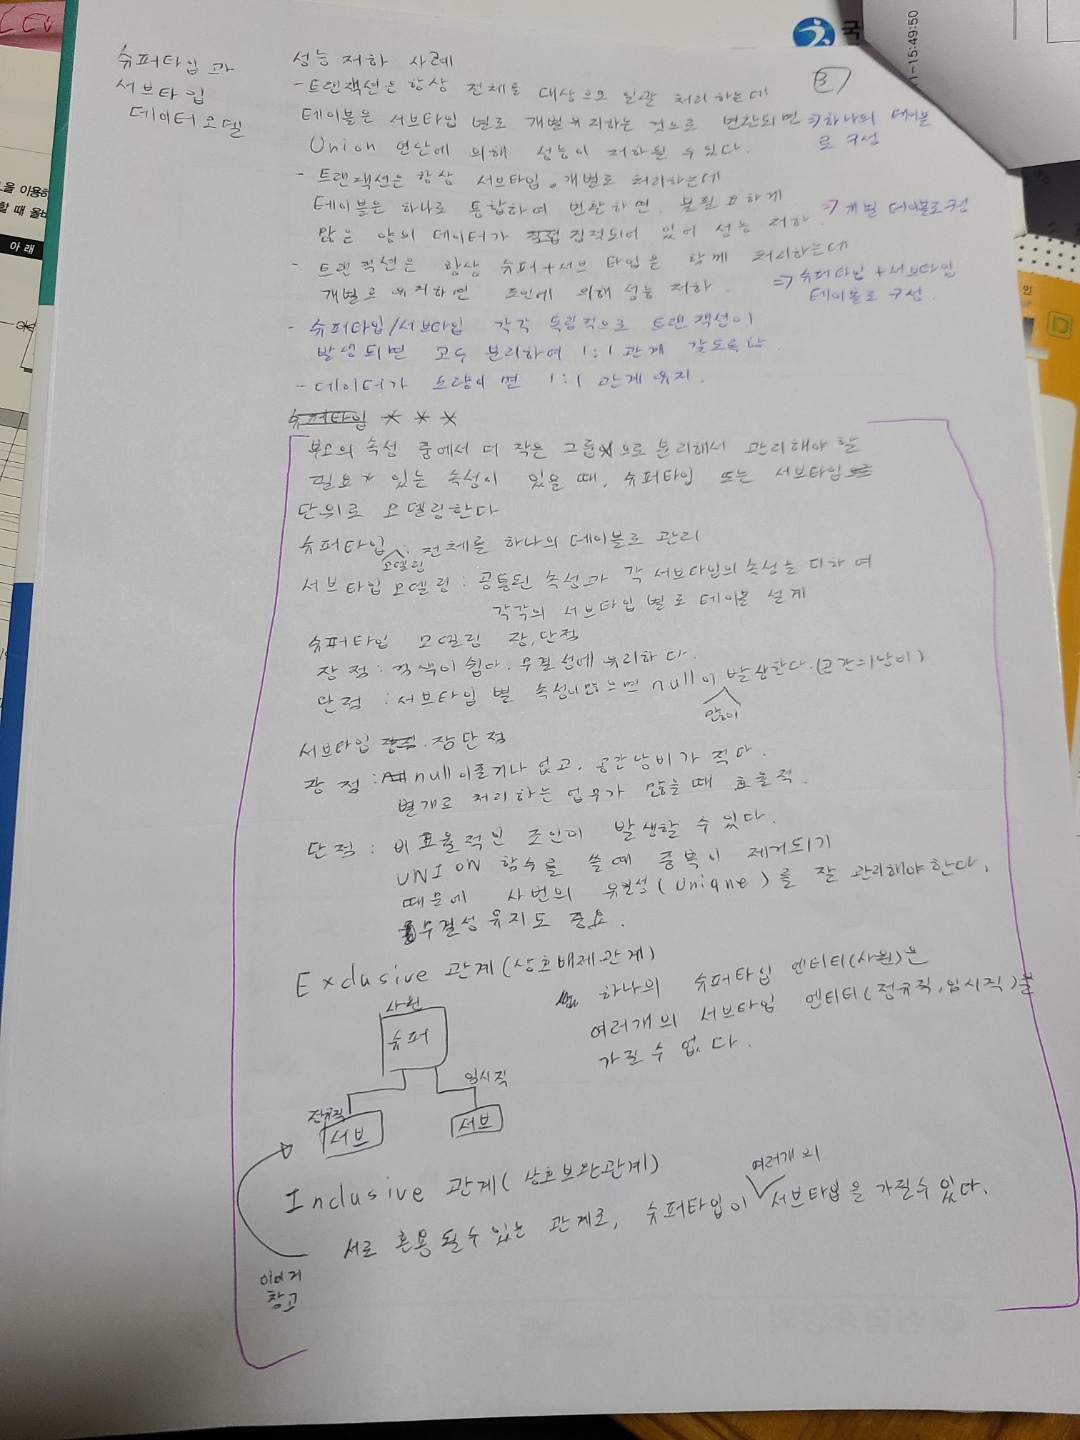 국
1-15:49:50
을 이용하
할 때 올바
아 래
인
D
3
슈퍼타입과
서브타입
데이터모델
성능 저하 사례
- 트랜잭션은 항상 전체를 대상으로 일괄 처리하는데
테이블은 서브타입 별로 개별 유지하는 것으로 변환되면 => 하나의 테이블
Union 연산에 의해 성능이 저하될 수 있다. 로 구성
- 트랜잭션은 항상 서브타입 개별로 처리하는데
테이블은 하나로 통합하여 변환하면, 불필요하게
많은 양의 데이터가 집적되어 있어 성능 저하 => 개별 테이블로 구성
- 트랜잭션은 항상 슈퍼+서브 타입을 함께 처리하는데
개별로 유지하면 조인에 의해 성능 저하. => 슈퍼타입+서브타입
테이블로 구성.
- 슈퍼타입/서브타입 각각 독립적으로 트랜잭션이
발생되면 모두 분리하여 1:1 관계 갖도록 함.
- 데이터가 소량이면 1:1 관계 유지.
슈퍼타입 * * *
부모의 속성 중에서 더 작은 그룹으로 분리해서 관리해야 할
필요가 있는 속성이 있을 때, 슈퍼타입 또는 서브타입
단위로 모델링한다
슈퍼타입 모델링 : 전체를 하나의 테이블로 관리
서브타입 모델링 : 공통된 속성과 각 서브타입의 속성을 더하여
각각의 서브타입 별로 테이블 설계
슈퍼타입 모델링 장,단점
장점 : 검색이 쉽다. 무결성에 유리하다.
단점 : 서브타입 별 속성이 많으면 null이 많이 발생한다.(공간의 낭비)
서브타입 장단점
장점 : null이 줄거나 없고, 공간낭비가 적다.
별개로 처리하는 업무가 많을때 효율적.
단점 : 비효율적인 조인이 발생할 수 있다.
UNION 함수를 쓸때 중복이 제거되기
때문에 사번의 유일성(Unique)를 잘 관리해야한다.
무결성 유지도 중요.
Exclusive 관계(상호배제관계)
사원
슈퍼
정규직
서브
임시직
서브
하나의 슈퍼타입 엔터티(사원)은
여러개의 서브타입 엔터티(정규직,임시직)을
가질 수 없다.
Inclusive 관계(상호보완관계)
서로 혼용 될수있는 관계로, 슈퍼타입이 여러개의 서브타입을 가질수있다.
참고